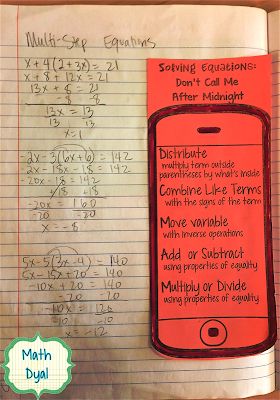 Multi-Step Equations
x + 4(2 + 3x) = 21
x + 8 + 12x = 21
13x + 8 = 21
-8 -8
13x = 13
13 13
x = 1
-2x - 3(6x + 6) = 142
-2x - 18x - 18 = 142
-20x - 18 = 142
+18 +18
-20x = 160
-20 -20
x = -8
5x - 5(3x - 4) = 140
5x - 15x + 20 = 140
-10x + 20 = 140
-20 -20
-10x = 120
-10 -10
x = -12
Solving Equations:
Don't Call Me
After Midnight
Distribute
multiply term outside
parentheses by what's inside
Combine Like Terms
with the signs of the term
Move variable
with inverse operations
Add or Subtract
using properties of equality
Multiply or Divide
using properties of equality
Math
Dyal